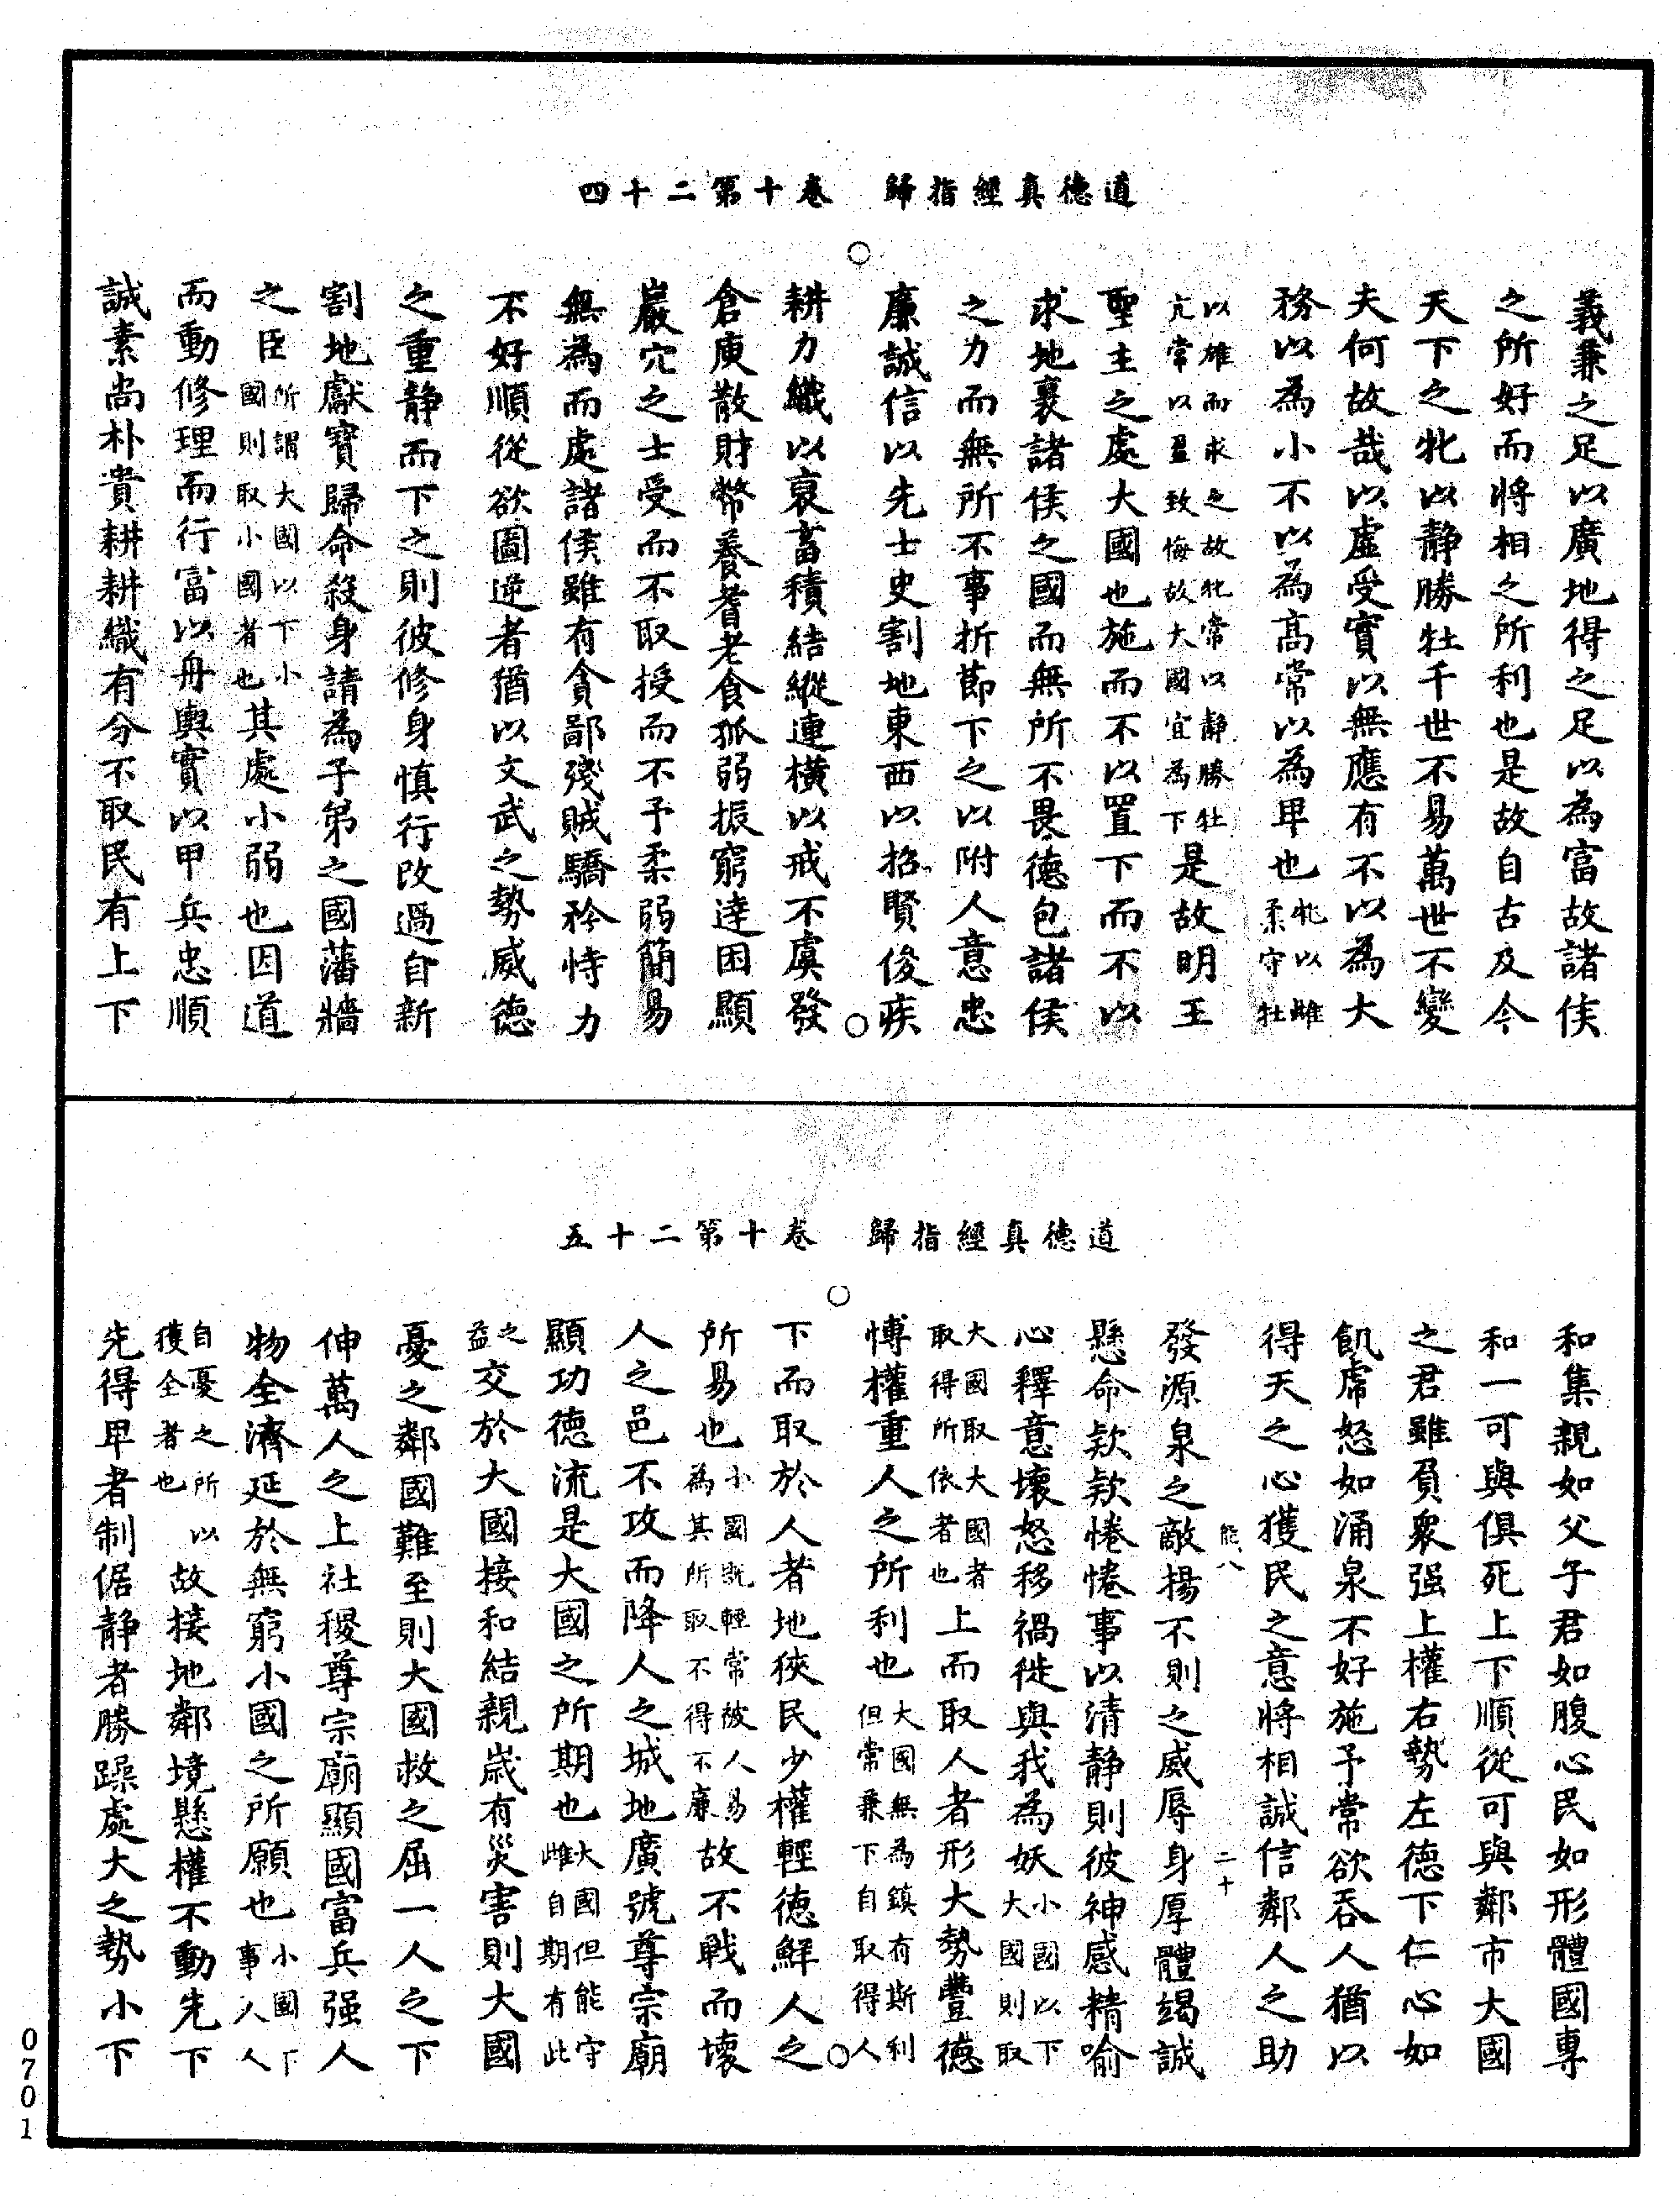 道德真經指歸　卷十第二十四
義兼之足以廣地得之足以為富故諸侯
之所好而將相之所利也是故自古及今
天下之牝以静勝牡千世不易萬世不變
夫何故哉以虛受實以無應有不以為大
務以為小不以為高常以為卑也牝以雌柔守牡
以雄而求之故牝常以静勝牡亢常以盈致悔故大國宜為下是故明王
聖主之處大國也施而不以置下而不以
求地襄諸侯之國而無所不畏德包諸侯
之力而無所不事折節下之以附人意忠
廉誠信以先士史割地東西以招賢俊疾
耕力織以衰畜積結縱連橫以戒不虞發
倉庾散財幣養耆老食孤弱振窮達困顯
巖穴之士受而不取授而不予柔弱簡易
無為而處諸侯雖有貪鄙殘賊驕矜恃力
不好順從欲圖逆者猶以文武之勢威德
之重静而下之則彼修身慎行改過自新
割地獻寶歸命殺身請為子弟之國藩牆
之臣所謂大國以下小國則取小國者也其處小弱也因道
而動修理而行富以舟輿實以甲兵忠順
誠素尚朴貴耕耕織有分不取民有上下
道德真經指歸　卷十第二十五
和集親如父子君如腹心民如形體國專
和一可與俱死上下順從可與鄰市大國
之君雖負衆强上權右勢左德下仁心如
飢虎怒如涌泉不好施予常欲吞人猶以
得天之心獲民之意將相誠信鄰人之助
能八　二十
發源泉之敵揚不則之威辱身厚體竭誠
懸命欵欵惓惓事以清静則彼神感精喻
心釋意壞怒移禍徙與我為妖小國以下大國則取
大國取大國者取得所依者也上而取人者形大勢豐德
愽權重人之所利也大國無為鎮有斯利但常兼下自取得人
下而取於人者地狹民少權輕德鮮人之
所易也小國既輕常被人易為其所取不得不廉故不戰而壞
人之邑不攻而降人之城地廣號尊宗廟
顯功德流是大國之所期也大國但能守雌自期有此
之益交於大國接和結親歲有災害則大國
憂之鄰國難至則大國救之屈一人之下
伸萬人之上社稷尊宗廟顯國富兵强人
物全濟延於無窮小國之所願也小國下事人人
自憂之所以獲全者也故接地鄰境懸權不動先下
先得卑者制倨静者勝躁處大之勢小下
0701